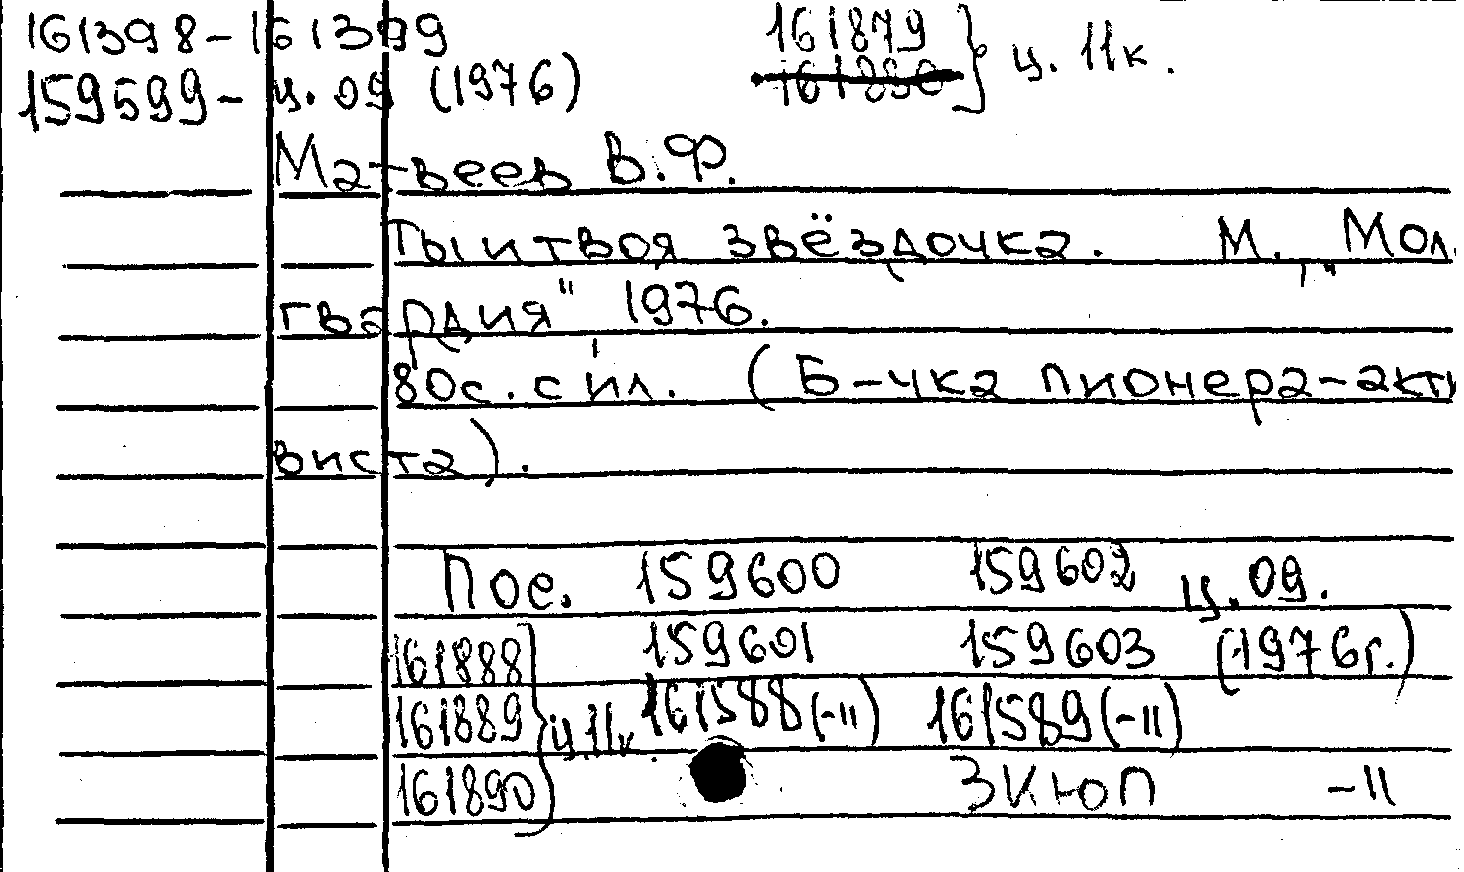 161398-161399 161879
159599- ц. 09 (1976) 161880 ц. 11к.
Матвеев В.Ф.
Ты и твоя звёздочка. М., "Мол.
гвардия" 1976.
80с. с ил. (Б-чка пионера-акти
виста).
Пос. 159600 159602 ц. 09.
161888 159601 159603 (1976г.)
161889 ц 11к. 161588 (-11) 161589 (-11)
161890 3кюп -11